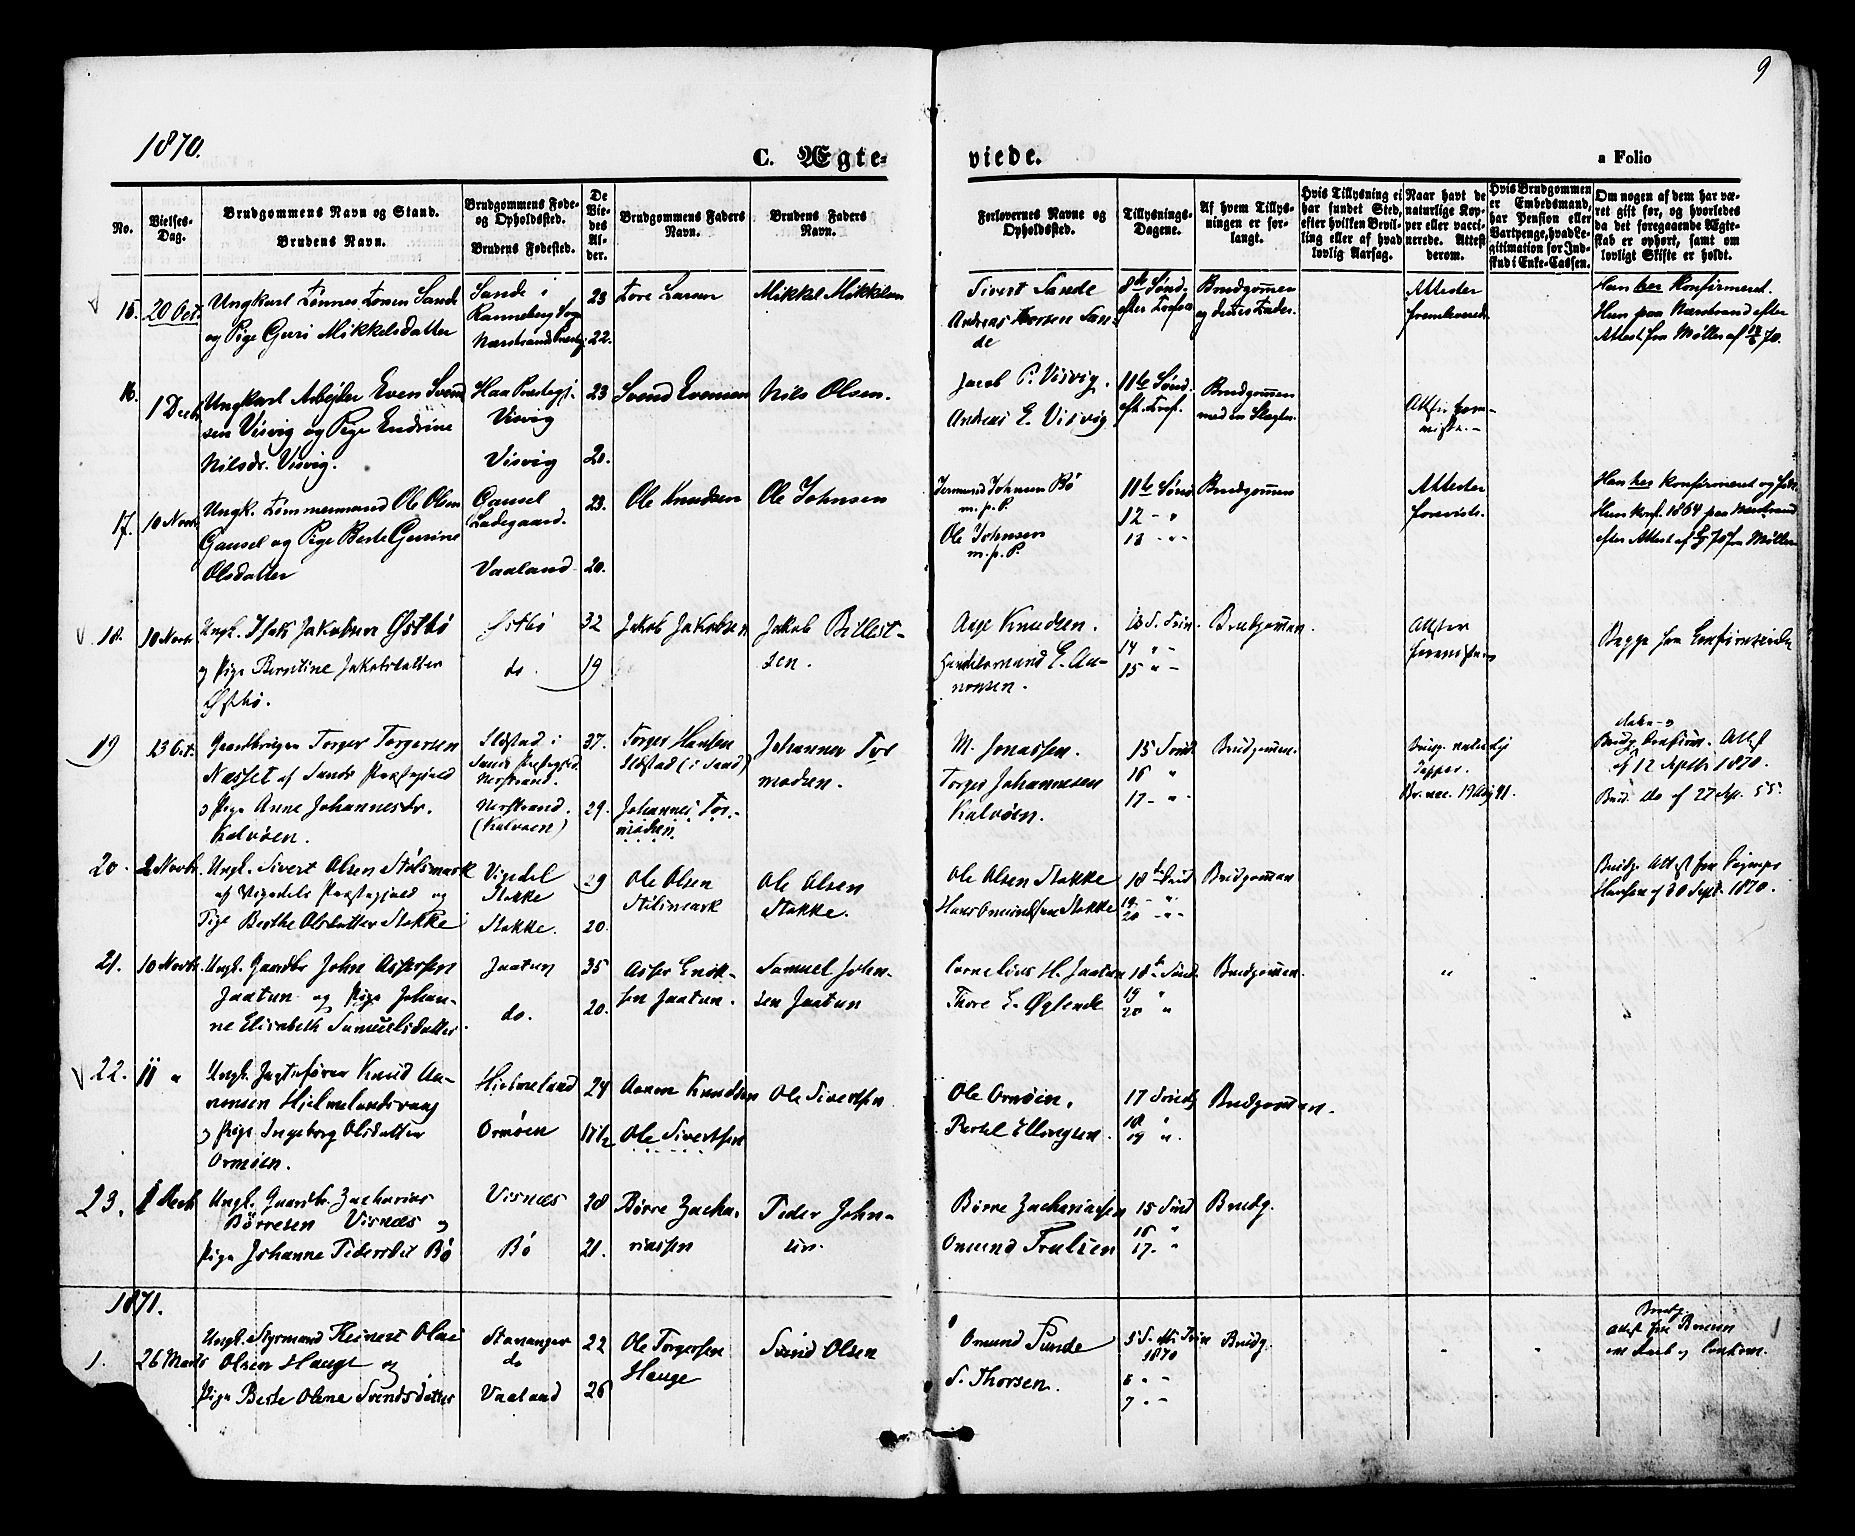 9
1870.
C. Ægte-
viede.
a Folio
No.
Vielses-
Dag.
Brudgommens Navn og Stand.
Brudens Navn.
Brudgommens Føde-
og Opholdssted.
Brudens Fødested.
De
Vie-
des
Al-
der.
Brudgommens Faders
Navn.
Brudens Faders
Navn.
Forlovernes Navne og
Opholdssted.
Tillysnings-
Dagene.
Af hvem Tillys-
ningen er for-
langt.
Hvis Tillysning ei
har fundet Sted,
efter hvilken Bevil-
ling eller af hvad
lovlig Aarsag.
Naar havt de
naturlige Kop-
per eller vacci-
nerede. Attest
derom.
Hvis Brudgommen
er Embedsmand,
har Pension eller
Vartpenge, hvad Le-
gitimation for Ind-
skud i Enke-Cassen.
Om nogen af dem har væ-
ret gift før, og hvorledes
da det foregaaende Ægte-
skab er ophørt, samt om
lovligt Skifte er holdt.
15. 20 Oct.
Ungkarl Tønnes Toresen Sande
og Pige Guri Mikkelsdatter
Sande i
Ranneberg Sogn
Nærstrands Prestegj.
23
22.
Tore Larsen
Mikkel Mikkelsen
Sivert Sande
Andreas Thorsen San-
de
8de Sønd.
efter Trefol.
Brudgommen
og dettes Fader.
Attester
fremleverede
Han her Konfirmeret.
Hun paa Nærstrand efter
Attest fra Møller af 70.
16. 1 Decb.
Ungkarl Arbejder Even Svend
sen Visvig og Pige Endrine
Nilsdr. Visvig.
Haa Prestegj.
Visvig
Visvig
23
20.
Svend Evensen
Nils Olsen.
Jacob P. Visvig.
Andreas E. Visvig
11te Sønd.
eft. Tref.
Brudgommen
med en Slægtn.
17. 10 Novb.
Ungk. Tømmermand Ole Olsen
Gausel og Pige Berte Gurine
Olsdatter
Gausel
Ladegaard.
Vaaland
23.
20.
Ole Knudsen
Ole Johnsen
Jermund Johnsen Bø
m. p. P.
Ole Johnsen
m. p. P.
11te Sønd.
12 - "
13 - "
Brudgommen
Attester
forevist.
Han her konfirmeret og født
Hun konf. 1864 paa Nærstrand
efter Attest af 70 fra Møller
18. 10 Novb.
Ungk. Isak Jakobsen Østbø
og Pige Berntine Jakobsdatter
Østbø.
Østbø
do.
32
19
Jakob Jakobsen
Jakob Billest-
sen.
Age Knudsen.
Handelsmand E. Aa-
nonsen.
13 S. Trin.
14 " -
15 " -
Brudgommen.
Attester
Begge her
19 23 Oct.
Gaardbruger Torger Torgersen
Næsset af Sands Præstegjeld
og Pige Anne Johannesdr.
Kalvøen.
Ilstad i
Sands Præstegjeld
Nerstrand.
Nerstrand.
(Kalvøen)
37.
29.
Torger Hansen
Ilstad (i Sand)
Johannes Tor-
madsen.
Johannes Tor
madsen.
M. Jonassen.
Torger Johannesen
Kalvøen.
15 Trind
16 "
17 - "
Brudgommen.
Brudg. naturlig
Kopper.
Br. vac. 17 Aug 41.
Brudg. Confirm. Attest
af 12 Septbr 1870.
Brud. do af 27 Sep. 55.
20. 2 Novb.
Ungk. Sivert Olsen Stølsmark
af Vigedals Præstegjeld og
Pige Berthe Olsdatter Stokke
Vigedal
Stokke
Stokke.
29
20.
Ole Olsen
Stølsmark
Ole Olsen
Stokke.
Ole Olsen Stokke
Hans Omundsen Stokke
18de Trind
19. - "
20 - "
Brudgommen
Brudg. Attest fra
Hansen af 30 Sept. 1870.
21. 10 Novb.
Ungk. Gaardbr John Assersen
Jaatun og Pige Johan-
ne Elisabeth Samuelsdatter.
Jaatun
do.
35
20.
Asser Erik-
sen Jaatun.
Samuel John-
sen Jaatun
Cornelius H. Jaatun
Thore E. Øglende
18de Sønd.
19 "
20 "
Brudgommen.
"
22. 11 "
Ungk. Jagtefører Knud Aa-
nonsen Hjelmelandsvaag
og Pige Ingeborg Olsdatter
Ormøen.
Hjelmeland
Ormøen
24
17½
Aanon Knudsen
Ole Sivertsen
Ole Sivertsen
Ole Ormøen.
Bertel Ellingsen.
17 Trind
18 "
19 "
Brudgommen.
23. 1 Decb
Ungk. Gaardbr. Zacharias
Børresen Visnæs og
Pige Johanne Pedersdat Bø
Visnæs
Bø
28
21.
Børre Zacha-
riassen
Peder John-
sen.
Børre Zachariassen
Omund Trulsen
15 Trind
16 "
17 - "
Brudg.
1871.
1. 26 Marts
Ungk. Styrmand Reinert Olai
Olsen Hauge og
Pige Berte Oline Svendsdatter
Stavanger
do
Vaaland
22
26
Ole Torgersen
Hauge
Svend Olsen
Omund Sunde
S. Thorsen.
5 S. eft. Trin
1870
6 " -
7 " -
Brudg.
Brudg.
Attest fra
om Daab og Confirm.